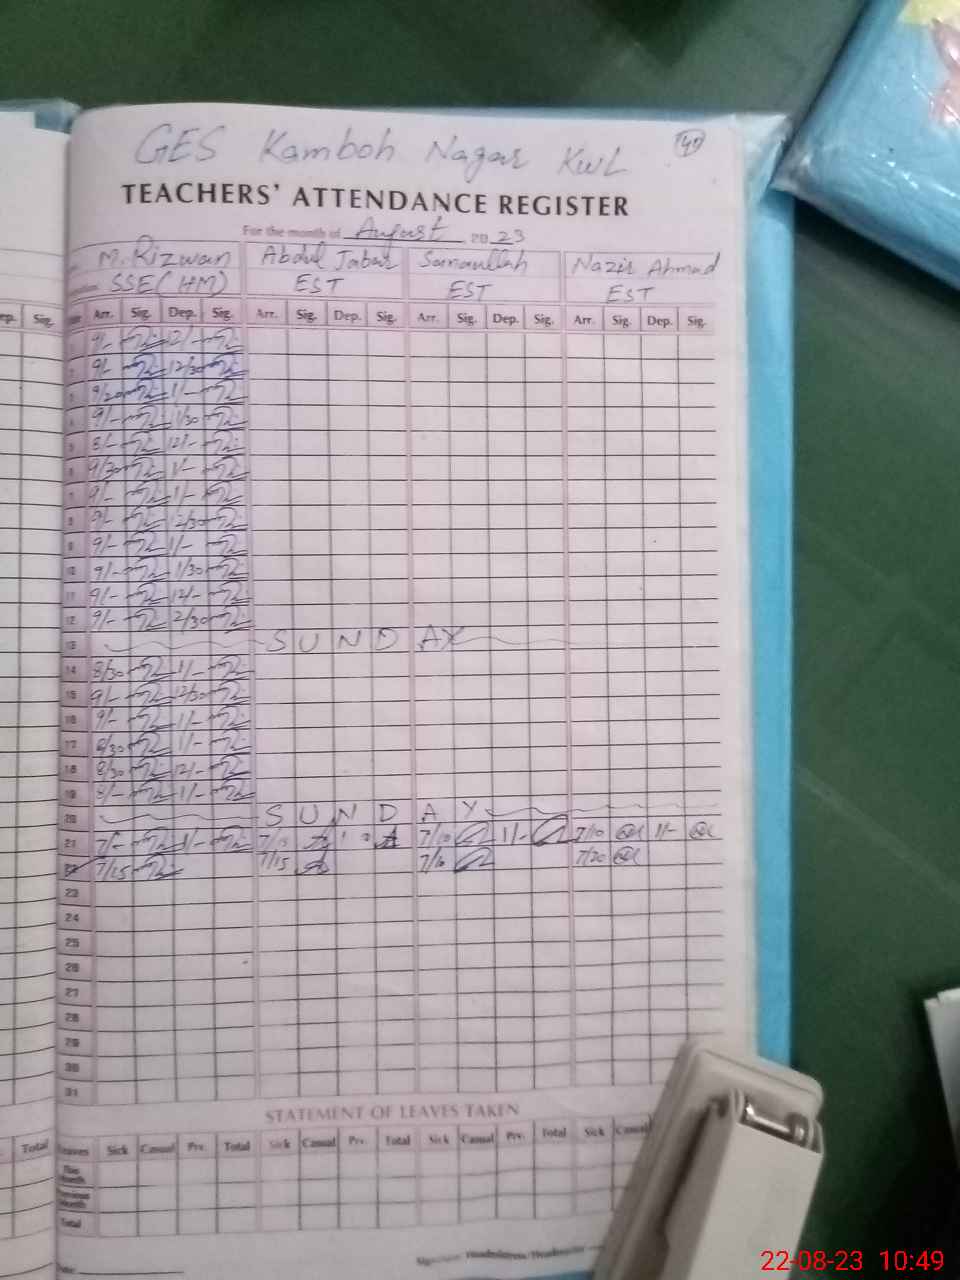 GES Kamboh Nagar KWL 40
TEACHERS' ATTENDANCE REGISTER
For the month of August 2023
M. Rizwan Abdul Jabar Sanaullah Nazir Ahmad
SSE (HM) EST EST EST
ep. Sig. Arr. Sig. Dep. Sig. Arr. Sig. Dep. Sig. Arr. Sig. Dep. Sig. Arr. Sig. Dep. Sig.
1 9/- 12/-
2 9/- 12/30
3 9/20 1/-
4 9/- 1/30
5 8/- 12/-
6 9/30 1/-
7 9/- 1/-
8 9/- 12/30
9 9/- 1/-
10 9/- 1/30
11 9/- 12/-
12 9/- 2/30
13 SUNDAY
14 8/30 1/-
15 9/- 12/30
16 9/- 1/-
17 8/30 1/-
18 8/30 12/-
19 8/- 1/-
20 SUNDAY
21 7/- 1/- 7/10 1/- 7/10 1/-
22 7/15 7/15 7/10 7/20
23
24
25
26
27
28
29
30
31
STATEMENT OF LEAVES TAKEN
Total Leaves Sick Casual Prv. Total Sick Casual Prv. Total Sick Casual Prv. Total Sick Casual
This Month
Previous Month
Total
Date
Signature Headmistress/Headmaster
22-08-23 10:49